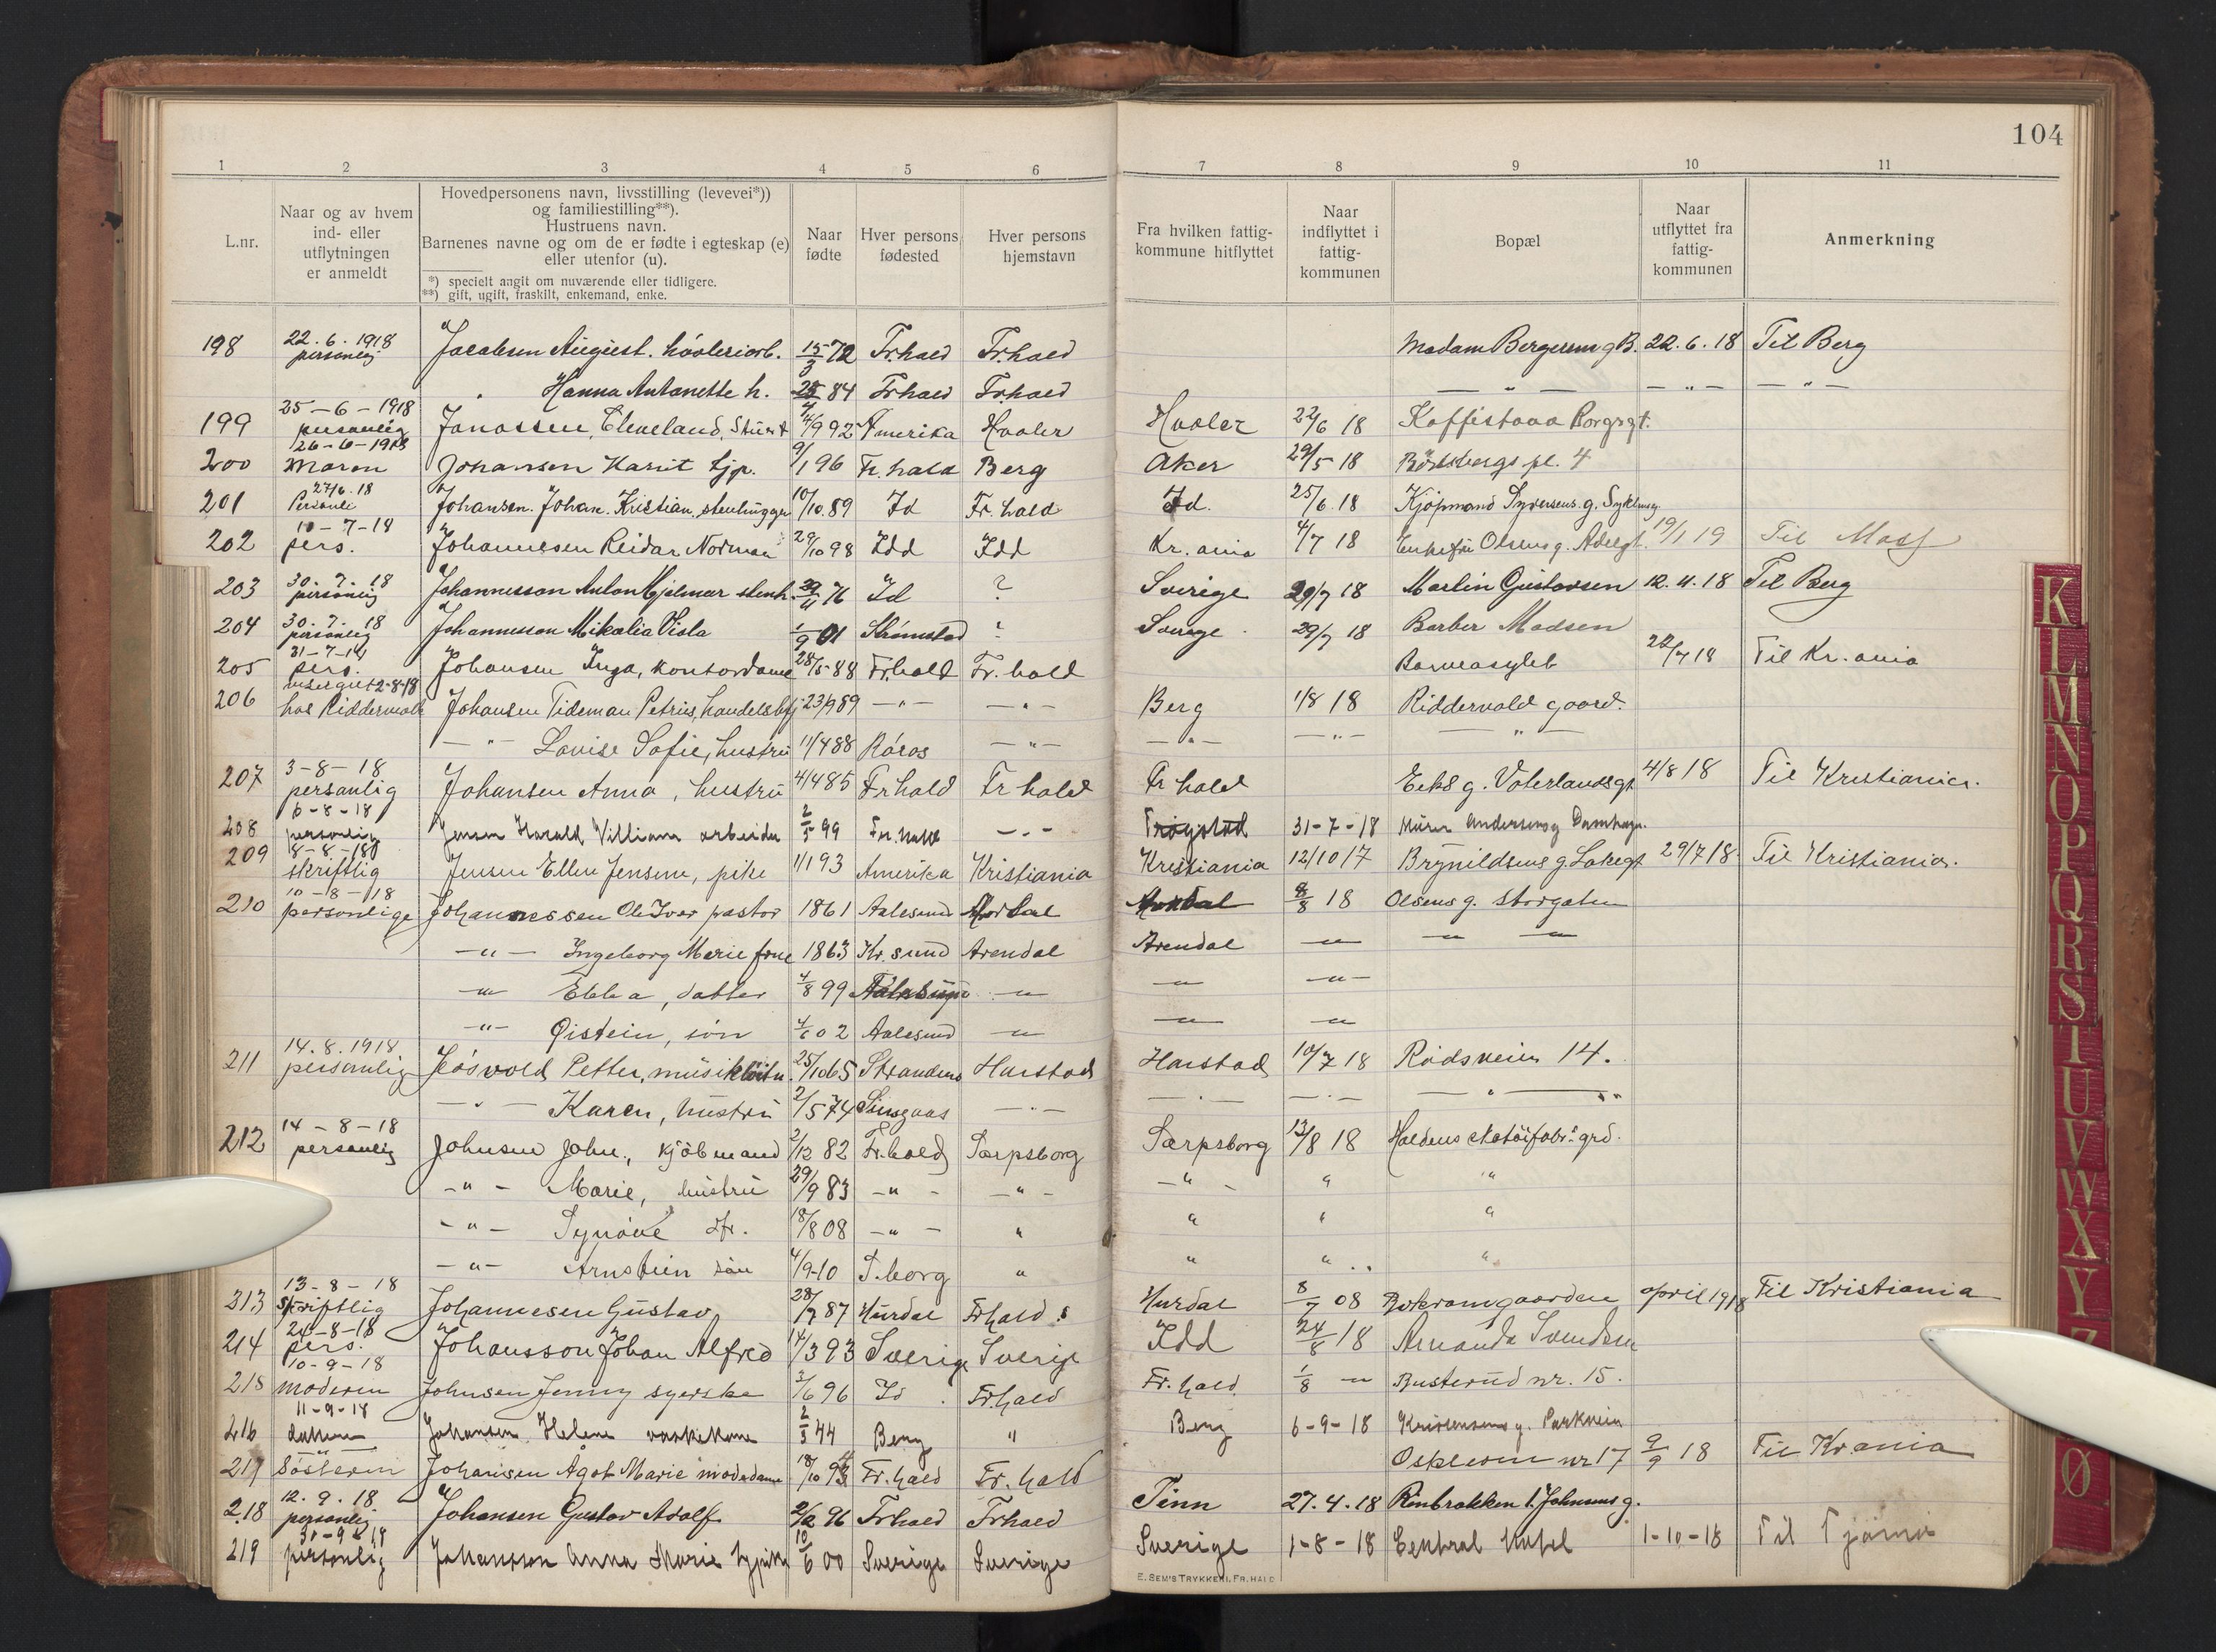 104
1 2 3 4 5 6 7 8 9 10 11
L.nr.
Naar og av hvem
ind- eller
utflytningen
er anmeldt
Hovedpersonens navn, livsstilling (levevei*))
og familiestilling**).
Hustruens navn.
Barnenes navne og om de er fødte i egteskap (e)
eller utenfor (u).
*) specielt angit om nuværende eller tidligere.
**) gift, ugift, fraskilt, enkemand, enke.
Naar
fødte
Hver persons
fødested
Hver persons
hjemstavn
Fra hvilken fattig-
kommune hitflyttet
Naar
indflyttet i
fattig-
kommunen
Bopæl
Naar
utflyttet fra
fattig-
kommunen
Anmerkning
198 22.6.1918 personlig Jacobsen August. 15/3 72 Fr.hald Fr.hald Madam 22.6.18 Til Berg
" Hanna Antonette h. 84 Fr.hald Fr.hald — " — — " — — " —
199 25-6-1918 personlig Jonassen, Cleveland, 4/9 92 Amerika Hvaler Hvaler 22/6 18 Kaffistova Borgrgt.
200 26-6-1918 moren Johansen Karit tjp. 9/1 96 Fr.hald Berg Aker 29/5 18 pl. 4
201 27/6.18 Johansen. Johan. Kristian. stenhugger 10/10.89 Id Fr.hald Id. 25/6.18 Kjøpmand Syversens g.
202 10-7-18 pers. Johannesen Reidar Norman 29/10 98 Idd Idd Kr.ania 4/7 18 Enkefru Olsens g. Adelgt. 19/1 19 Til Moss
203 30.7.18 personlig Johannesson Anton Hjalmar stenh. 76 Id ? Sverige 29/7 18 Martin Gustavsen 12.11.18 Til Berg
204 30.7.18 personlig Johannesson Mikalia Viola 1/9 01 Strömstad ? Sverige 29/7 18 Barber Madsen
205 31-7-18 pers. Johansen Inga, kontordame 28/5 88 Fr.hald Fr.hald Barneasylet 22/7 18 Til Kr.ania
206 2-8-18 hos Riddervold Johansen Tideman Petrius, 23/9 89 — " — — " — Berg 1/8 18 Riddervold gaard.
— " — Lovise Sofie, hustru 11/4 88 Röros — " — — " — — " — — " —
207 3-8-18 personlig Johansen Anna, hustru 4/4 85 Fr hald Fr hald Fr hald Eeks g. Vaterlandsgt 4/8 18 Til Kristiania.
208 6-8-18 personlig Jensen Harald Villiam arbeider 2/5 99 Fr.hald — " — Trøgstad 31-7-18 Murer Andersens g Damhaugn.
209 8-8-18 skriftlig Jensen Ellen Jensine, pike 1/1 93 Amerika Kristiania Kristiania 12/10 17 Brynildsens g. 29/7 18. Til Kristiania.
210 10-8-18 personlige Johannessen Ole Ivar pastor 1861 Aalesund 8/8 18 Olsens g. Storgaten
— " — Ingeborg Marie frue 1863 Kr.sund Arendal Arendal — " — — " — — " —
— " — Ebba, datter 4/8 99 — " — — " — — " —
— " — Øistein, sön 4/6 02 Aalesund — " — — " — — " —
211 14.8.1918 personlig Petter, 25/10 65 Harstad Harstad 10/7 18 Rödsveien 14.
— " — Karen, hustru 2/5 74 — " — — " — — " — — " —
212 14-8-18 personlig Johnsen John., kjöbmand 2/12 82 Fr.hald Sarpsborg Sarpsborg 13/8 18 Haldens skotöifabr. grd.
— " — Marie, hustru 29/9 83 — " — — " — — " — " "
— " — Synöve dtr. 18/8 08 — " — " " " "
— " — Arnstein sön 4/9 10 S.borg " " " "
213 13-8-18 skriftlig Johannesen Gustav 28/7 87 Hurdal Fr.hald Hurdal 8/7 08 april 1918 Til Kristiania
214 24-8-18 pers. Johansson Johan Alfred 14/3 93 Sverige Sverige Idd 24/8 18 Amanda Svendsen
215 10-9-18 moderen Johnsen Jenny syerske 3/6 96 Id Fr.hald Fr.hald 1/8 — " Busterud nr. 15.
216 11-9-18 Johansen Helene vaskekone 2/3 44 Berg " Berg 6-9-18 Kristensens g. Parkveien
217 — " — Söstern Johansen Agot Marie modedame 18/10 93 Fr.hald Fr.hald nr 17 9/9 18 Til Kr.ania
218 12.9.18 personlig Johansen Gustav Adolf 2/2 96 Fr.hald Fr.hald Tinn 27.4.18 Rinbrakken 1. Johnsens g.
219 personlig Johansson Anna Marie 6 00 Sverige Sverige Sverige 1-8-18 Central Hotel 1-10-18 Til
E. SEM'S TRYKKERI, FR.HALD
K
L
M
N
O
P
Q
R
S
T
U
V
W
X
Y
Z
Ø